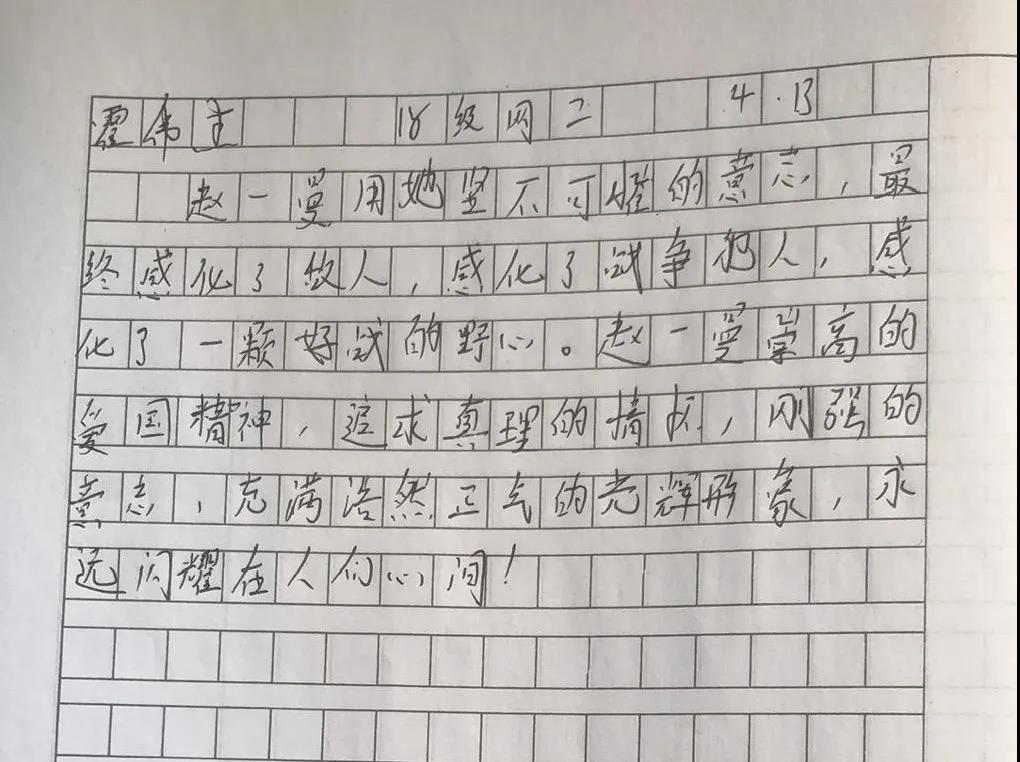 霍伟主 18级网二 4.13
赵一曼用她坚不可摧的意志，最
终感化了敌人，感化了战争犯人，感
化了一颗好战的野心。赵一曼崇高的
爱国精神，追求真理的情怀，刚强的
意志，充满浩然正气的光辉形象，永
远闪耀在人们心间！